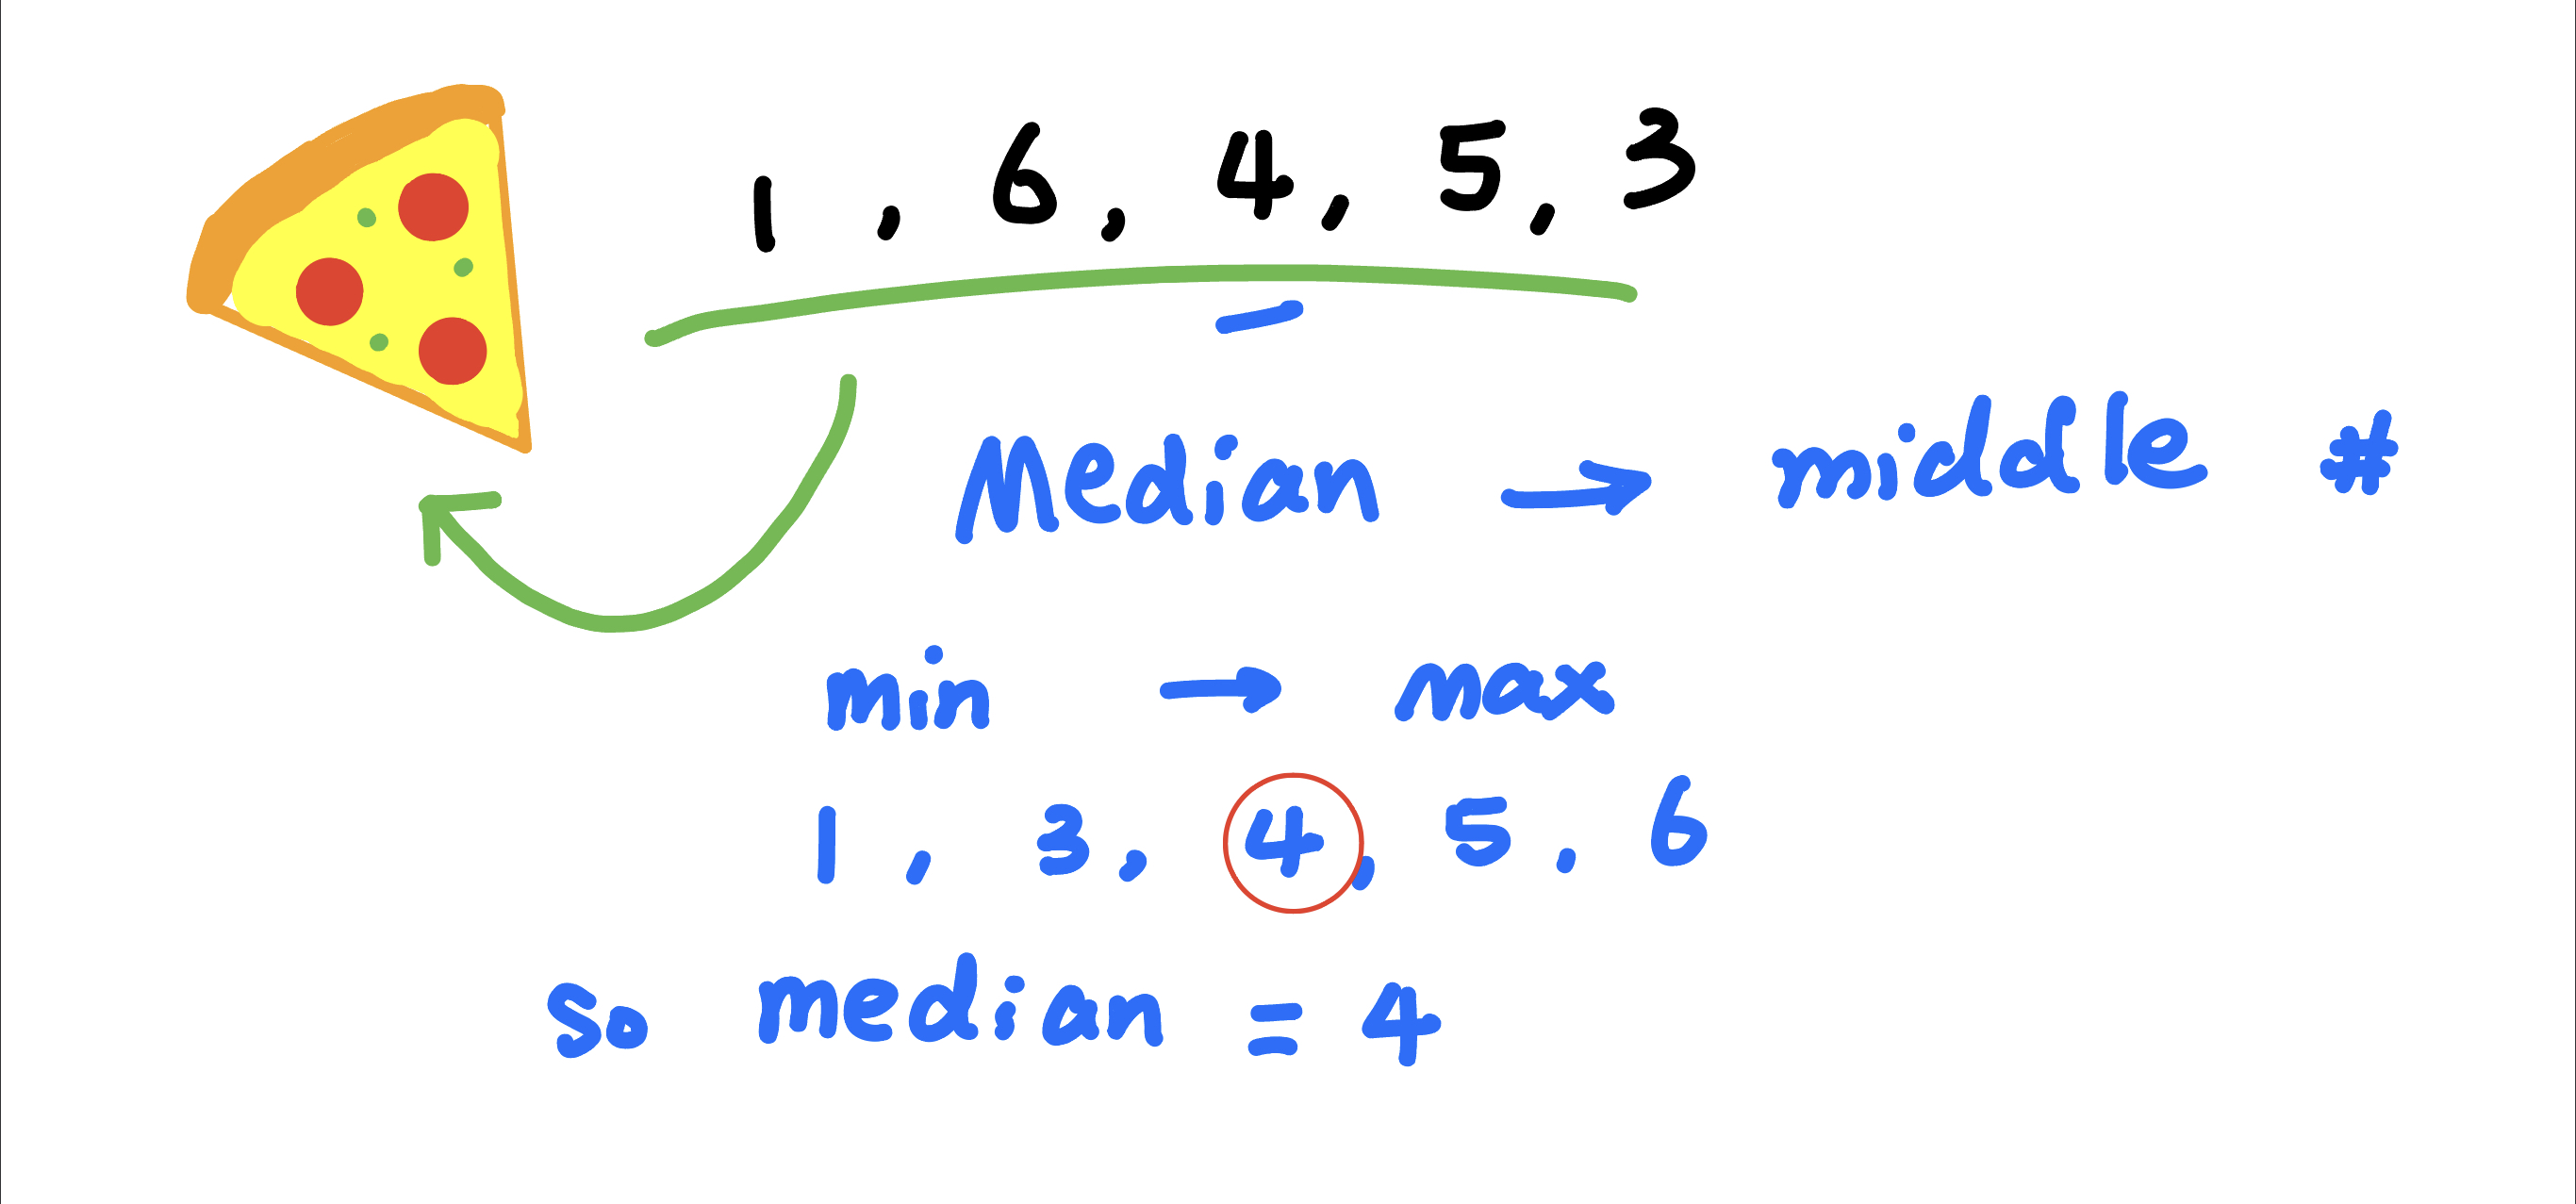 1, 6, 4, 5, 3
Median → middle #
min → max
1, 3, 4, 5, 6
so median = 4